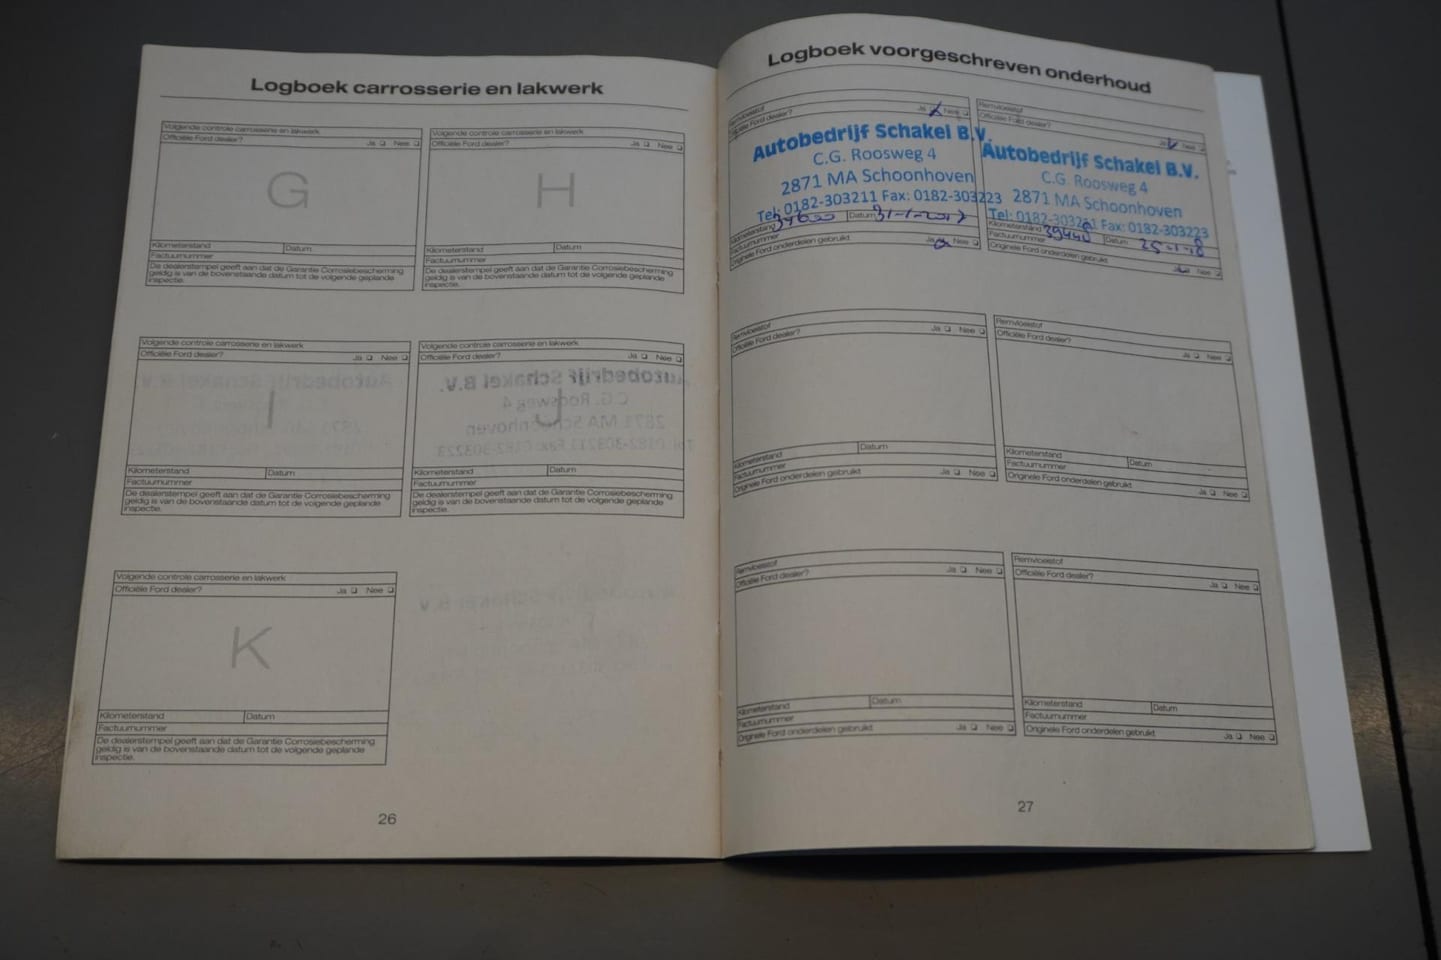 Logboek carrosserie en lakwerk
Volgende controle carrosserie en lakwerk
Officiële Ford dealer? Ja ❑ Nee ❑
G
Kilometerstand Datum
Factuurnummer
De dealerstempel geeft aan dat de Garantie Corrosiebescherming
geldig is van de bovenstaande datum tot de volgende geplande
inspectie.
Volgende controle carrosserie en lakwerk
Officiële Ford dealer? Ja ❑ Nee ❑
H
Kilometerstand Datum
Factuurnummer
De dealerstempel geeft aan dat de Garantie Corrosiebescherming
geldig is van de bovenstaande datum tot de volgende geplande
inspectie.
Volgende controle carrosserie en lakwerk
Officiële Ford dealer? Ja ❑ Nee ❑
I
Kilometerstand Datum
Factuurnummer
De dealerstempel geeft aan dat de Garantie Corrosiebescherming
geldig is van de bovenstaande datum tot de volgende geplande
inspectie.
Volgende controle carrosserie en lakwerk
Officiële Ford dealer? Ja ❑ Nee ❑
J
Kilometerstand Datum
Factuurnummer
De dealerstempel geeft aan dat de Garantie Corrosiebescherming
geldig is van de bovenstaande datum tot de volgende geplande
inspectie.
Volgende controle carrosserie en lakwerk
Officiële Ford dealer? Ja ❑ Nee ❑
K
Kilometerstand Datum
Factuurnummer
De dealerstempel geeft aan dat de Garantie Corrosiebescherming
geldig is van de bovenstaande datum tot de volgende geplande
inspectie.
26
Logboek voorgeschreven onderhoud
Remvloeistof
Officiële Ford dealer? Ja ❑ Nee ❑
Autobedrijf Schakel B.V.
C.G. Roosweg 4
2871 MA Schoonhoven
Tel: 0182-303211 Fax: 0182-303223
Kilometerstand Datum 31-1-2017
Factuurnummer
Originele Ford onderdelen gebruikt Ja ❑ Nee ❑
Remvloeistof
Officiële Ford dealer?
Ja ❑ Nee ❑
Autobedrijf Schakel B.V.
C.G. Roosweg 4
2871 MA Schoonhoven
Tel: 0182-303211 Fax: 0182-303223
Kilometerstand 39440 Datum
Factuurnummer
Originele Ford onderdelen gebruikt
Ja ❑ Nee ❑
Remvloeistof
Officiële Ford dealer? Ja ❑ Nee ❑
Kilometerstand Datum
Factuurnummer
Originele Ford onderdelen gebruikt Ja ❑ Nee ❑
Remvloeistof
Officiële Ford dealer? Ja ❑ Nee ❑
Kilometerstand Datum
Factuurnummer
Originele Ford onderdelen gebruikt Ja ❑ Nee ❑
Remvloeistof
Officiële Ford dealer? Ja ❑ Nee ❑
Kilometerstand Datum
Factuurnummer
Originele Ford onderdelen gebruikt Ja ❑ Nee ❑
Remvloeistof
Officiële Ford dealer? Ja ❑ Nee ❑
Kilometerstand Datum
Factuurnummer
Originele Ford onderdelen gebruikt Ja ❑ Nee ❑
27